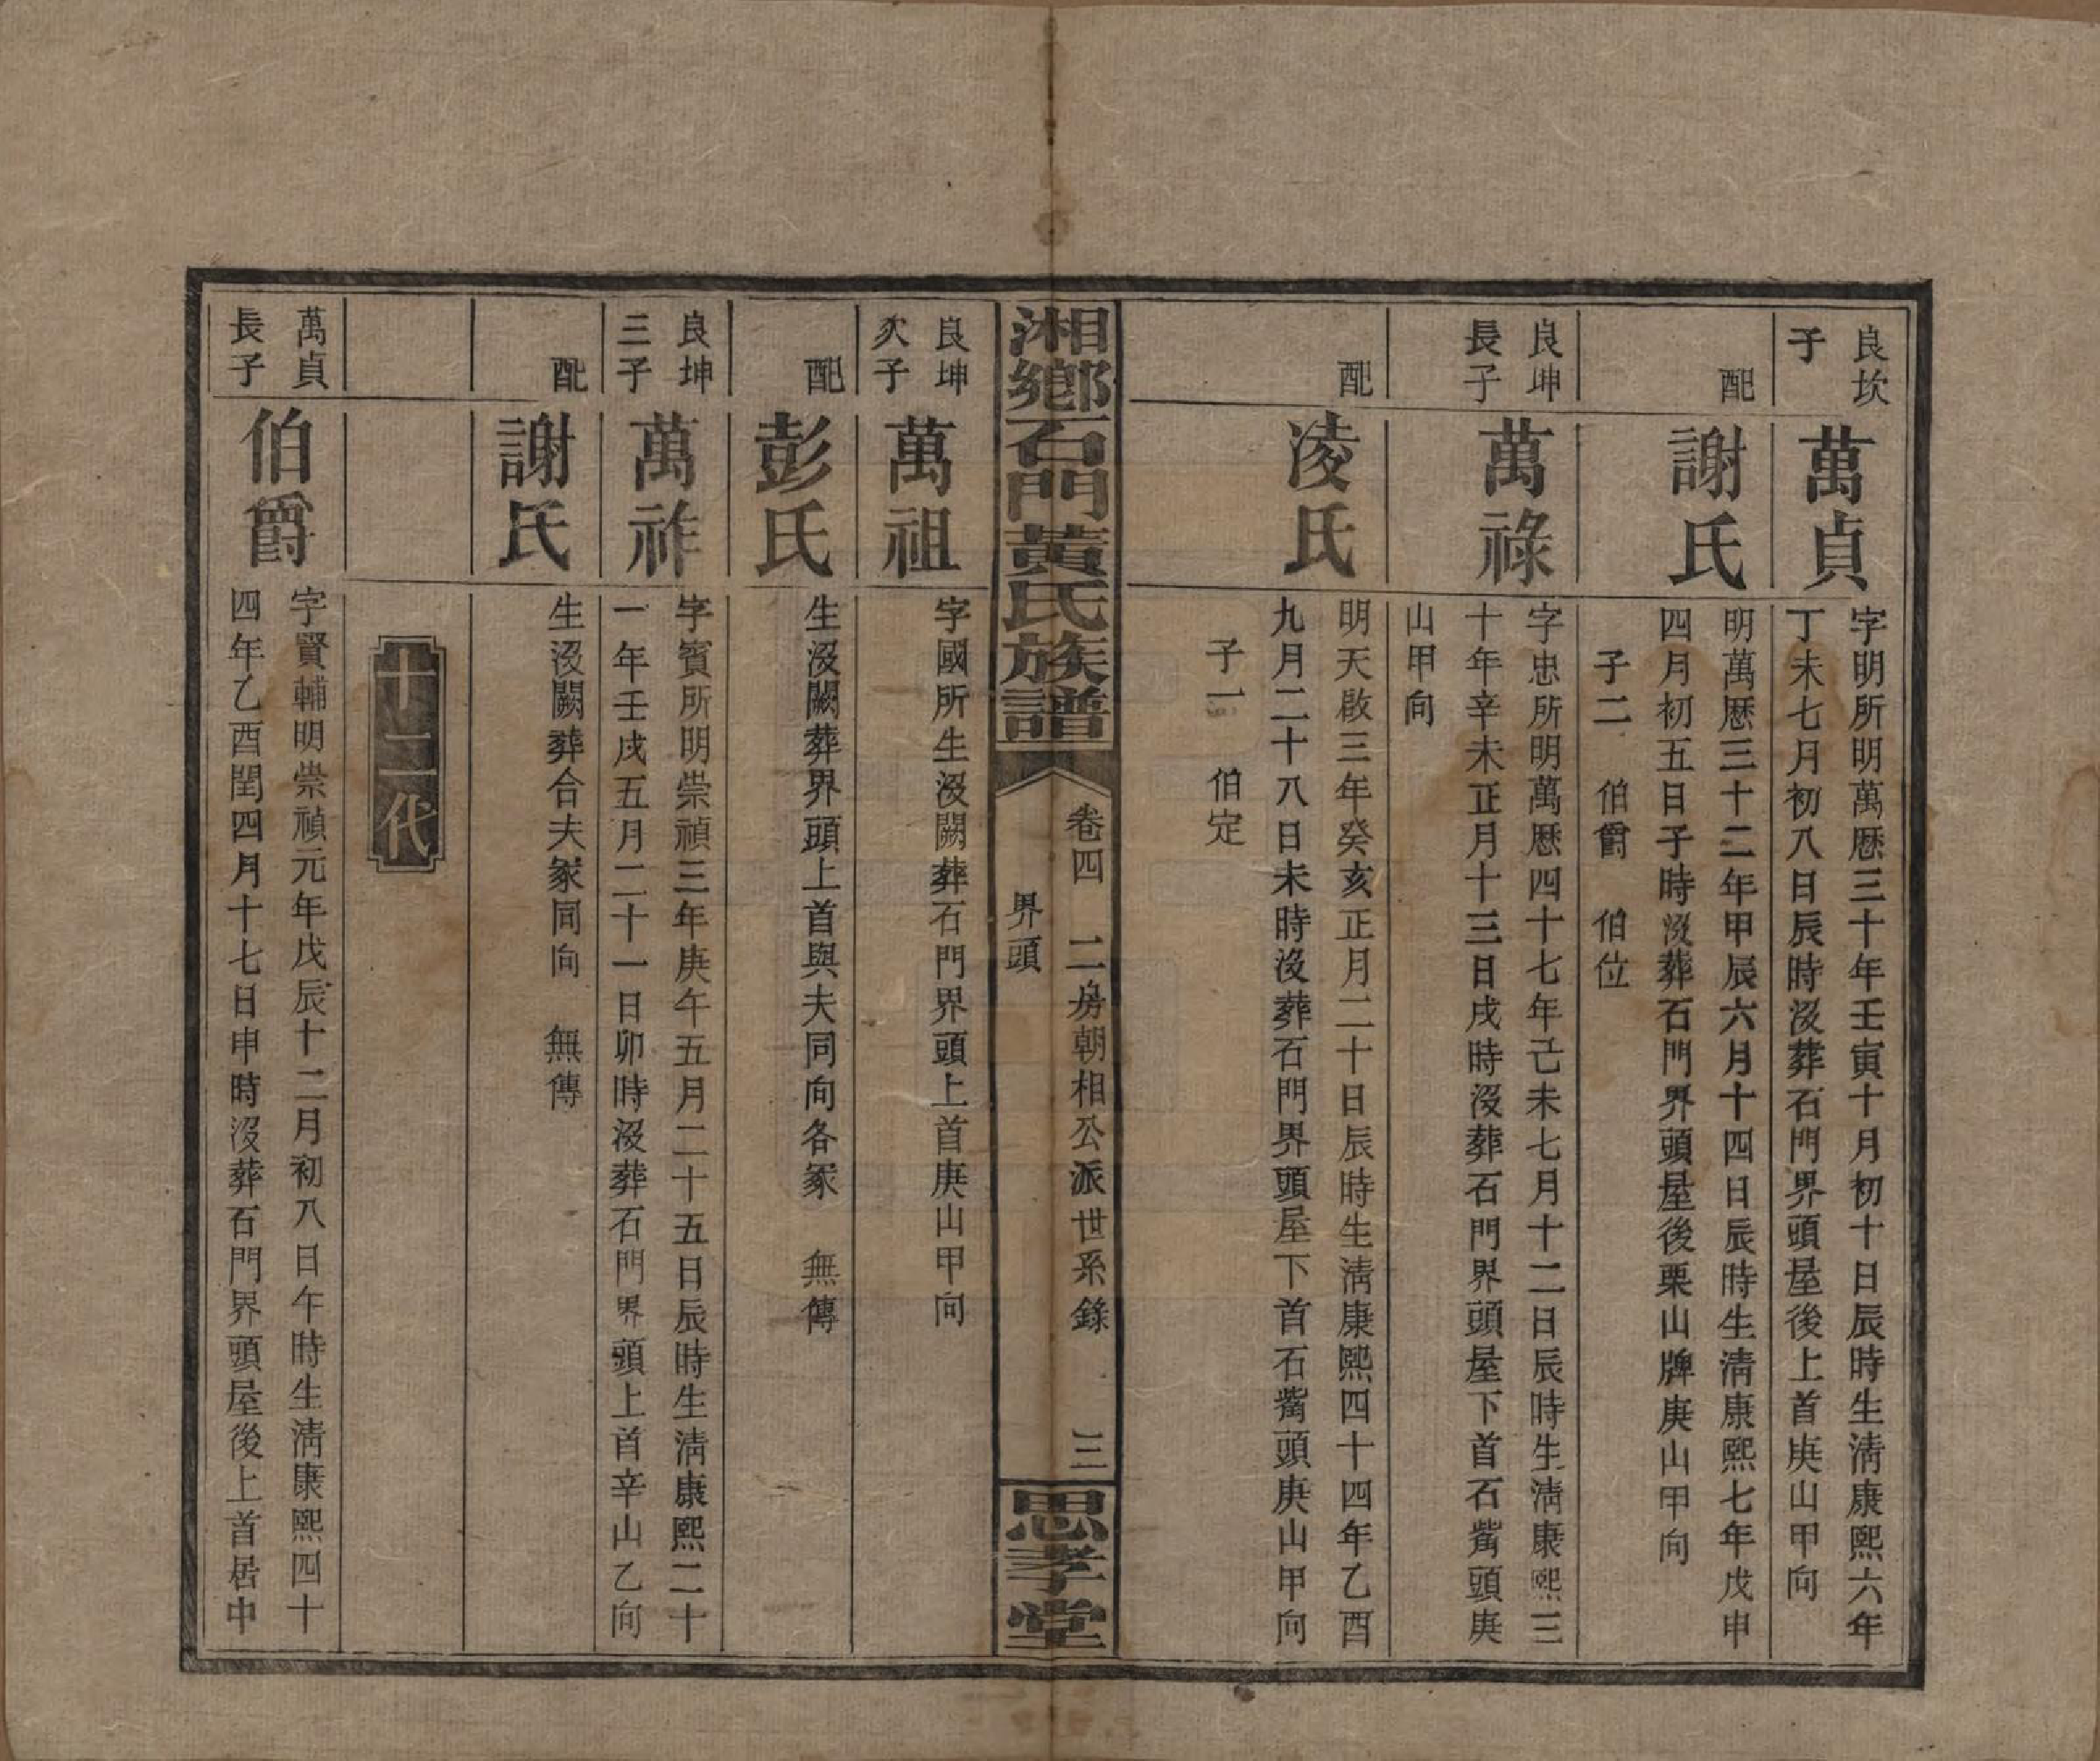 良坎
子
萬貞
字明所明萬歷三十年壬寅十月初十日辰時生淸康熙六年
丁未七月初八日辰時沒葬石門界頭屋後上首庚山甲向
配
謝氏
明萬歷三十二年甲辰六月十四日辰時生淸康熙七年戊申
四月初五日子時沒葬石門界頭屋後栗山牌庚山甲向
子二 伯爵 伯位
良坤
長子
萬祿
字忠所明萬歷四十七年己未七月十二日辰時生淸康熙三
十年辛未正月十三日戌時沒葬石門界頭屋下首石觜頭庚
山甲向
配
凌氏
明天啟三年癸亥正月二十日辰時生淸康熙四十四年乙酉
九月二十八日未時沒葬石門界頭屋下首石觜頭庚山甲向
子一 伯定
湘鄉石門黃氏族譜
卷四 二房朝相公派世系錄 三
界頭
思孝堂
良坤
次子
萬祖
字國所生沒闕葬石門界頭上首庚山甲向
配
彭氏
生沒闕葬界頭上首與夫同向各冢 無傳
良坤
三子
萬祚
字賓所明崇禎三年庚午五月二十五日辰時生淸康熙二十
一年壬戌五月二十一日卯時沒葬石門界頭上首辛山乙向
配
謝氏
生沒闕葬合夫冢同向 無傳
十二代
萬貞
長子
伯爵
字賢輔明崇禎元年戊辰十二月初八日午時生淸康熙四十
四年乙酉閏四月十七日申時沒葬石門界頭屋後上首居中